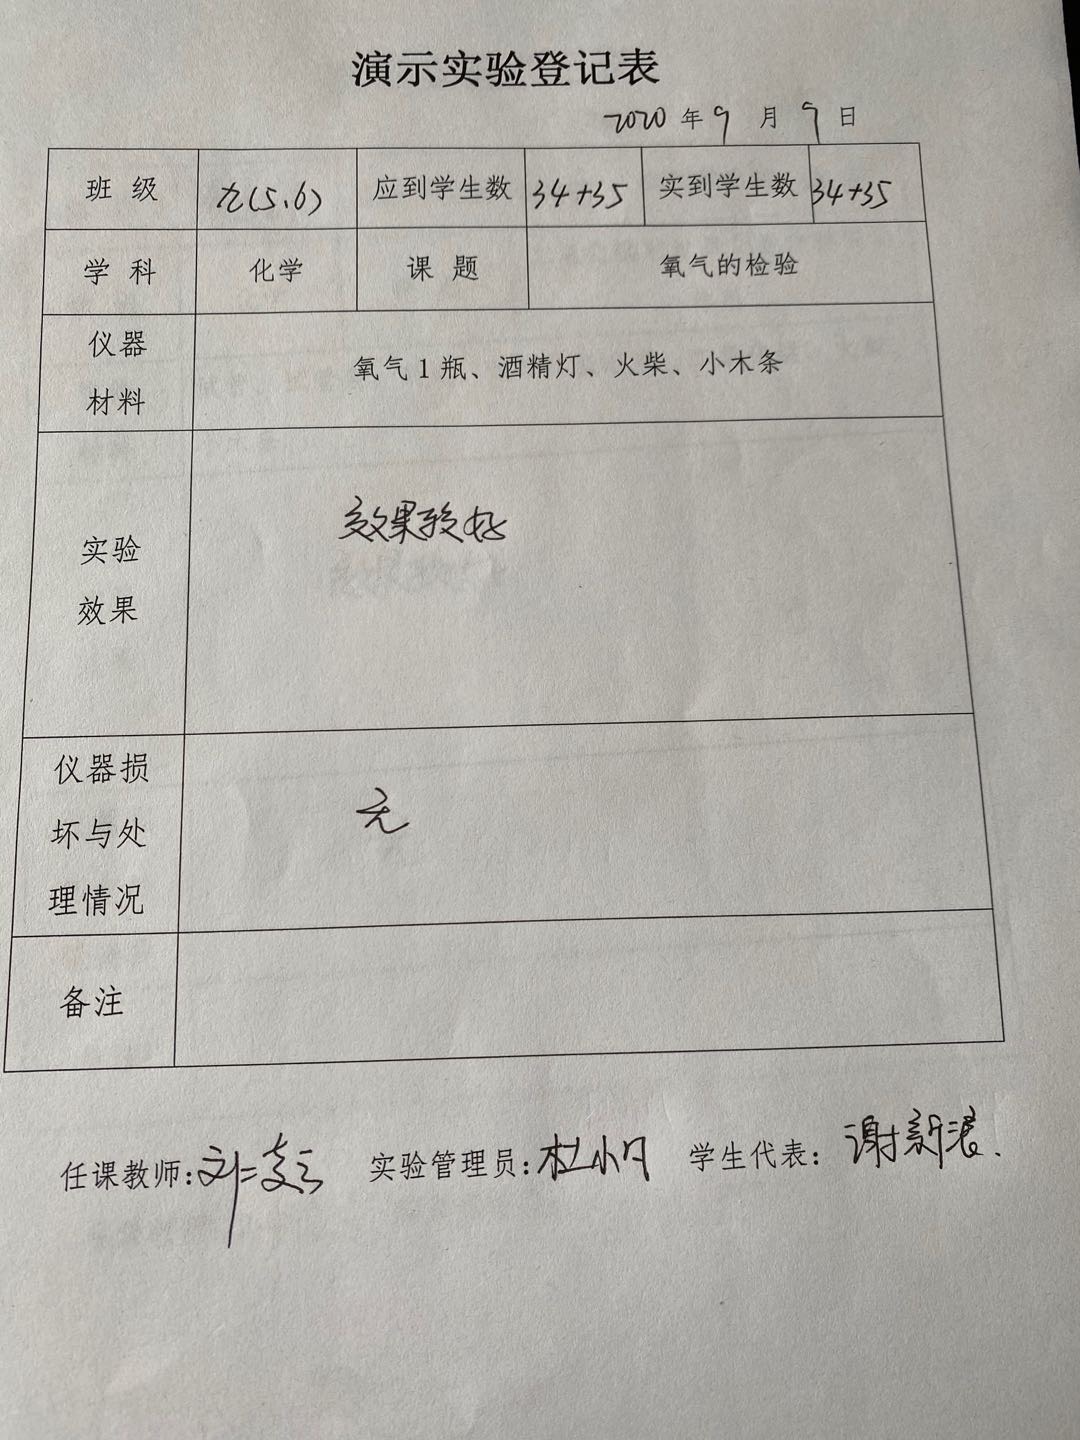 演示实验登记表
2020 年 9 月 9 日
班 级 九(5、6) 应到学生数 34+35 实到学生数 34+35
学 科 化学 课 题 氧气的检验
仪器
材料
氧气 1 瓶、酒精灯、火柴、小木条
实验
效果
效果较好
仪器损
坏与处
理情况
无
备注
任课教师: 刘二 实验管理员: 杜小月 学生代表: 谢新